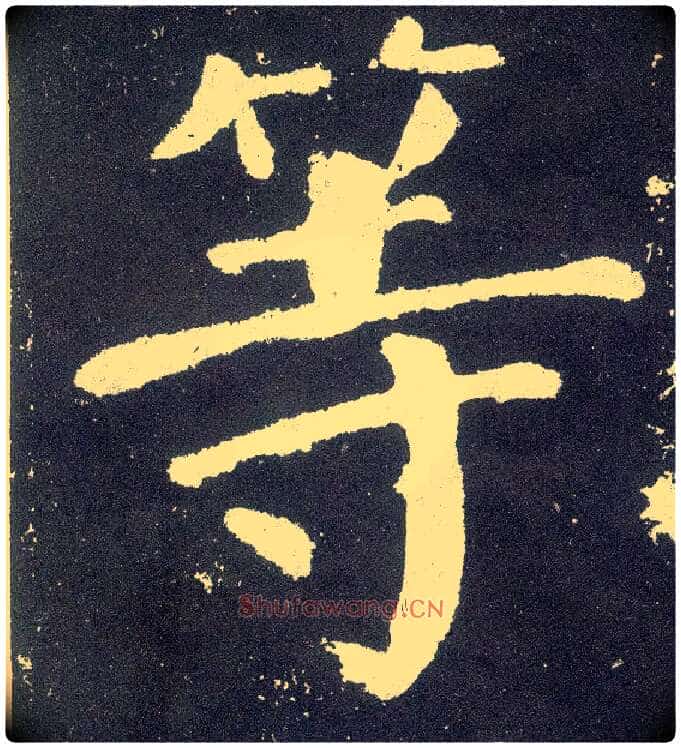 等
Shufawang.CN